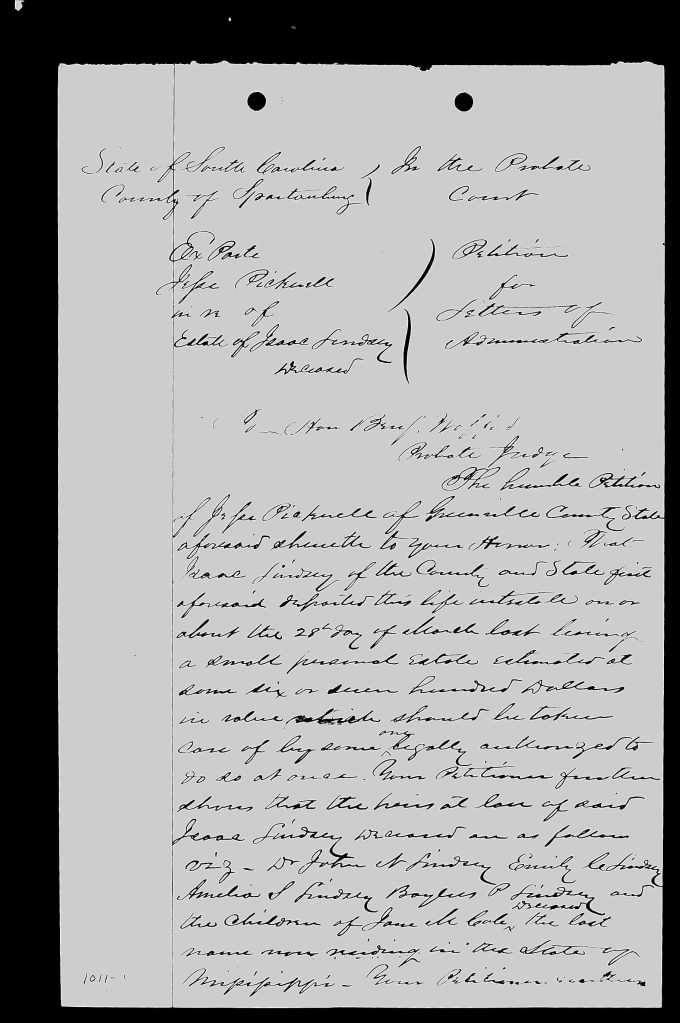 State of South Carolina
In the Probate
County of Spartanburg
Court
Ex Parte
Jesse Pickrell
in re of
Estate of Isaac Lindsey
Deceased
Petition
for
Letters of
Administration
Hon Benj.
Probate Judge
The humble Petition
of Jesse Pickrell of Greenville County State
aforesaid sheweth to your Honor: That
Isaac Lindsey of the County and State first
aforesaid departed this life intestate on or
about the 28th day of March last leaving
a small personal Estate estimated at
some six or seven hundred Dollars
in value which should be taken
care of by some one legally authorized to
do so at once. Your Petitioner further
shows that the heirs at law of said
Isaac Lindsey Deceased are as follows
viz - Dr John N Lindsey Emily C Lindsey
Amelia S Lindsey Baylus P Lindsey and
the Children of Jane M Cole Deceased, the last
name now residing in the State of
Missippi - Your Petitioner further
1011-